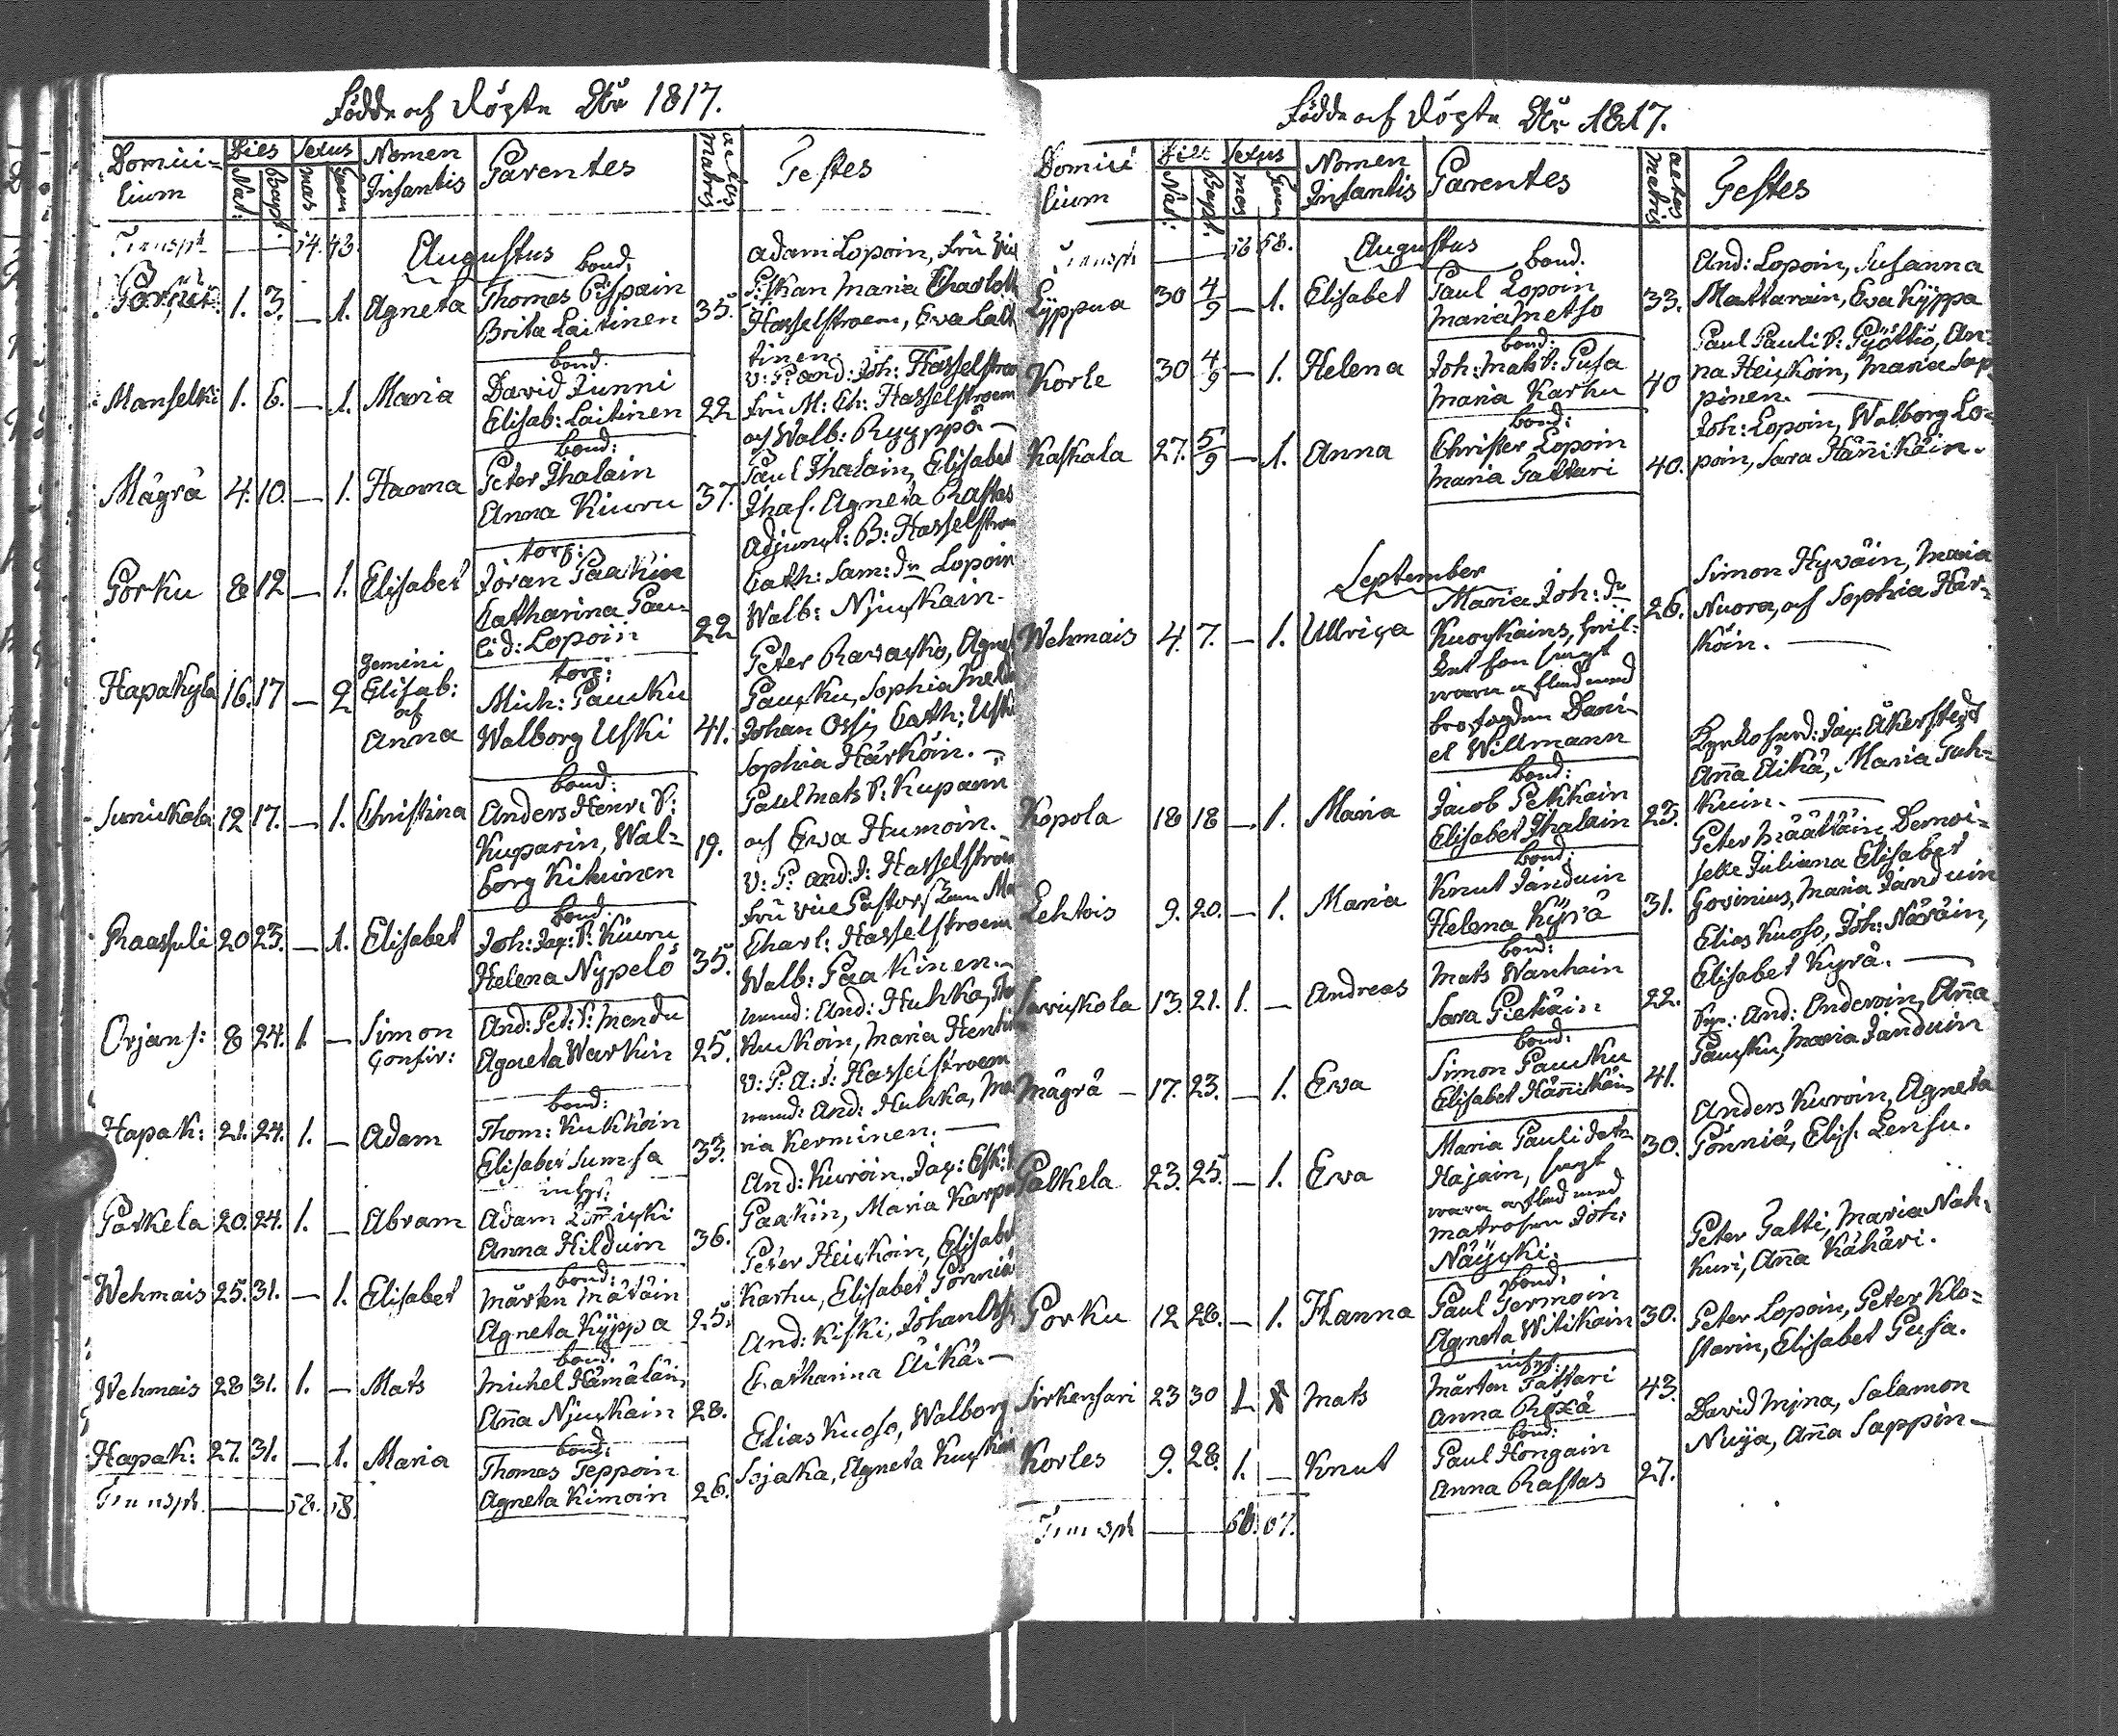 Födde och Döpte År 1817.
Domici-
lium
Dies
Nat:
Bapt.
Sexus
mas
Foem
Nomen
Infantis
Parentes
aetas
matris
Testes
Transpt — — 54. 43.
Augustus
bond:
1. 3. — 1. Agneta
Thomas Pispain
Brita Laitinen 35.
Adam Lopoin, Fru
Pitkan Maria Charlott
Hasselstroem, Eva Lait
tinen.
Manselk: 1. 6. — 1. Maria
bond:
David Junni
Elisab: Laitinen 22
V: P. And: Joh: Hasselstroem
Fru M: Ch: Hasselstroem
och Walb: Ryyppö —
Mägrä 4. 10. — 1. Hanna
bond:
Peter Ihalain
Anna Kiuru 37.
Paul Ihalain, Elisabet
Ihal. Agneta Rastas
Porku 8 12 — 1. Elisabet
torp:
Jöran Paakin
Catharina Pau-
li d: Lopoin 22
Adjunct: B: Hasselstroem
Cath: Sam: dr Lopoin
Walb: Njuckain.
Hapakyla 16. 17 — 2
Gemini
Elisab:
och
Anna
torp:
Mich: Paucku
Walborg Uski 41.
Peter Ravacko, Agnet
Paucku, Sophia
Johan Ossi, Cath: Uski
Sophia Härköin. —
Suruckala 12 17. — 1. Christina
bond:
Anders Henr: S:
Kuparin, Wal-
borg Kikuinen 19.
Paul Mats S: Kuparin
och Ewa Humoin.
Raasuli 20 23. — 1. Elisabet
bond:
Joh: Jac: S: Kiuru
Helena Nypelö 35.
V: P. And: J: Hasselstroem
Fru vice Pastorskan Ma
Charl: Hasselstroem
Walb: Paakinen. —
Orjans: 8 24. 1. — Simon
And: Pet: S: Mendu
Agneta Warkin 25.
And: Huhka,
Kuckoin, Maria Hentin
Hapak: 21. 24. 1. — Adam
bond:
Thom: Kukkoin
Elisabet Sumsa 33.
V: P. A: J: Hasselstroem
And: Huhka, Ma
ria Kerminen. —
Palkela 20. 24. 1. — Abram
inhys:
Adam
Anna Hilduin 36.
And: Kuroin, Jac: Esk: S.
Paakin, Maria Karp
Wehmais 25. 31. — 1. Elisabet
bond:
Mårten Mätäin
Agneta Kyppa 25.
Peter Heickoin, Elisabet
Karhu, Elisabet Pönniä
Wehmais 28 31. 1. — Mats
bond.
Michel Hämäläin
Anna Njuckain 28.
And: Kiski, Johan Ossi
Catharina Äikä. —
Hapak: 27. 31. — 1. Maria
bond:
Thomas Teppoin
Agneta Kimoin 26.
Elias Kuoso, Walborg
Sojaka, Agneta Kuckoin
Transpt. — — 58. 58.
Födde och Döpte År 1817.
Domici
lium
Dies
Nat:
Bapt.
Sexus
mas
Foem
Nomen
Infantis
Parentes
aetas
matris
Testes
Transpt — 58 58.
Augustus
Lyppua 30 4/9 — 1. Elisabet
bond.
Paul Lopoin
Maria Metso 33.
And: Lopoin, Susanna
Mattarain, Eva Kyppa
Korle 30 4/9 — 1. Helena
bond:
Joh: Mats S: Pusa
Maria Karhu 40
Paul Pauli S: Pyöttiö, An-
na Heickoin, Maria Sap-
pinen. —
Kaskala 27. 5/9 — 1. Anna
bond:
Christer Lopoin
Maria Tattari 40.
Joh: Lopoin, Walborg Lo-
poin, Sara Hännikäin.
September
Wehmais 4. 7. — 1. Ullrica
Maria Joh: dr
Kuockains,
warn aflad med
brofogden Dani-
el Willmann
26.
Simon Hyväin, Maria
Nuora, och Sophia Här-
köin. —
Kopola 18 18 — 1. Maria
bond:
Jacob Pekkain
Elisabet Ihalain 23.
Kyrkoherd: Jac: Åkerstedt
Anna Äikä, Maria Suh-
kuin. —
Lehtois 9. 20. — 1. Maria
bond:
Knut Janduin
Helena Kyrä 31.
Peter Määttäin, Demoi-
selle Juliana Elisabet
Govinius, Maria Janduin
Savickola 13. 21. 1. — Andreas
bond:
Mats Wanhain
Sara Pietiäin 22.
Elias Kuoso, Joh: Näräin,
Elisabet Kyrä. —
Mägrä — 17. 23. — 1. Ewa
bond:
Simon Paucku
Elisabet Hännikäin 41.
And: Anderoin, Anna
Paucku, Maria Janduin
Palkela 23. 25. — 1. Ewa
Maria Pauli dotr
Hajain, sagt
warn aflad med
matrosen Joh:
Näycki.
30.
Anders Kuroin, Agneta
Pönniä, Elis. Lensu.
Porku 12 28. — 1. Hanna
bond:
Paul Termoin
Agneta Witikain 30.
Peter Talti, Maria Nak-
kuri, Anna Kähäri.
Sirkensari 23 30 1. Mats
inhys:
Mårten Tattari
Anna Röxä 43.
Peter Lopoin, Peter Klo-
starin, Elisabet Pusa.
Korles 9. 28. 1. — Knut
bond:
Paul Hongain
Anna Rastas 27.
David Mjna, Salamon
Nuija, Anna Sappin —
Transpt — 67.